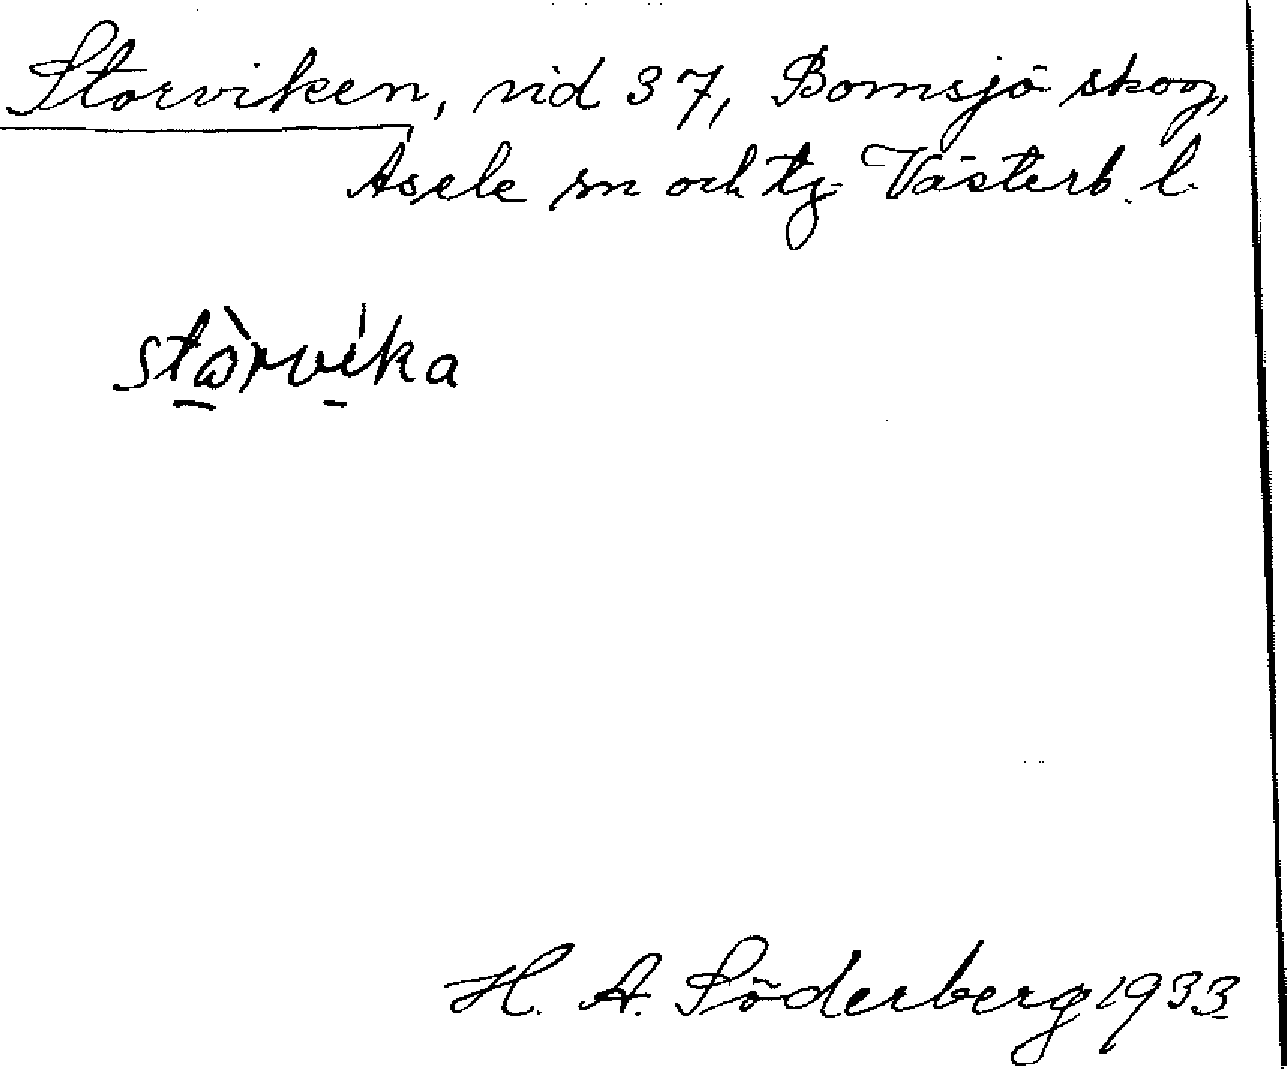 Storviken, vid 37, Bomsjö skog,
Åsele sn och tg. Västerb. l.
stὼrvíka
H. A. Söderberg 1933